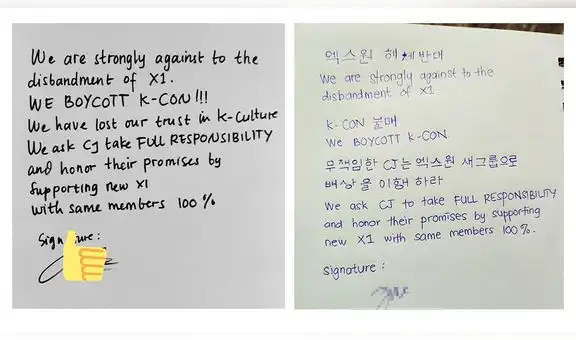 We are strongly against to the
disbandment of X1.
WE BOYCOTT K-CON!!!
We have lost our trust in K-Culture
We ask CJ take FULL RESPONSIBILITY
and honor their promises by
Supporting new X1
with same members 100%
Signature:
엑스원 해체반대
We are strongly against to the
disbandment of X1
K-CON 불매
We BOYCOTT K-CON.
무책임한 CJ는 엑스원 새그룹으로
배상을 이행하라
We ask CJ to take FULL RESPONSIBILITY
and honor their promises by supporting
new X1 with same members 100%.
Signature: